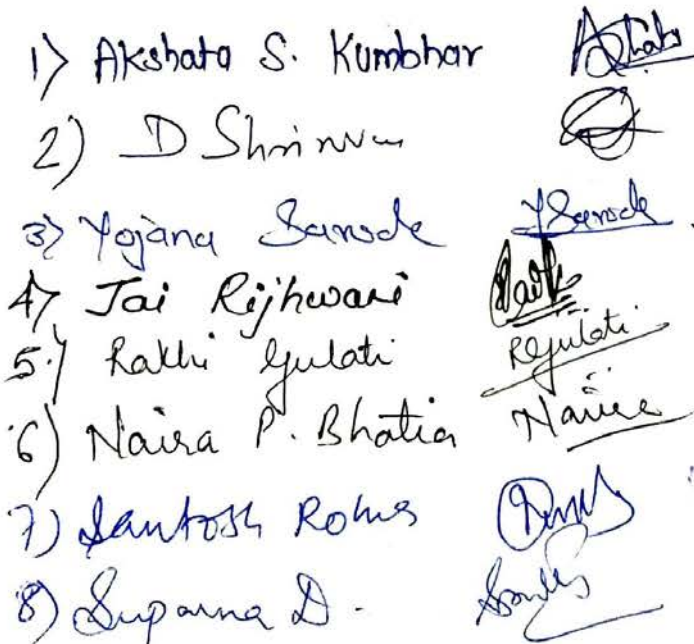 1) Akshata S. Kumbhar
2) D Shrinivas
3) Yojana Sarode YSarode
4) Jai Rijhwani
5.) Rakhi Gulati RGulati
6) Naira P. Bhatia Naira
7) Santosh
8) Suparna D.